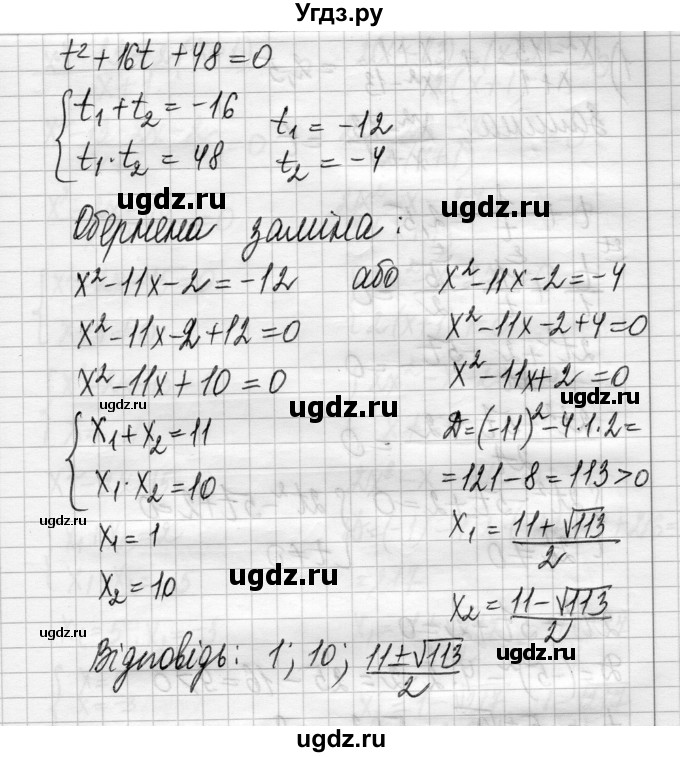 Угдз.ру
t² + 16t + 48 = 0
t₁ + t₂ = -16
t₁ · t₂ = 48
t₁ = -12
t₂ = -4
ugdz.ru
ugdz.ru
Обернена заміна:
x² - 11x - 2 = -12 або x² - 11x - 2 = -4
x² - 11x - 2 + 12 = 0
x² - 11x + 10 = 0
ugdz.ru
x₁ + x₂ = 11
x₁ · x₂ = 10
ugdz.ru
x₁ = 1
x₂ = 10
ugdz.ru
x² - 11x - 2 + 4 = 0
x² - 11x + 2 = 0
ugdz.ru
ugdz.ru
Д = (-11)² - 4·1·2 =
= 121 - 8 = 113 > 0
x₁ = (11 + √113)/2
ugdz.ru
x₂ = (11 - √113)/2
ugdz.ru
Відповідь: 1; 10; (11 ± √113)/2
ugdz.ru